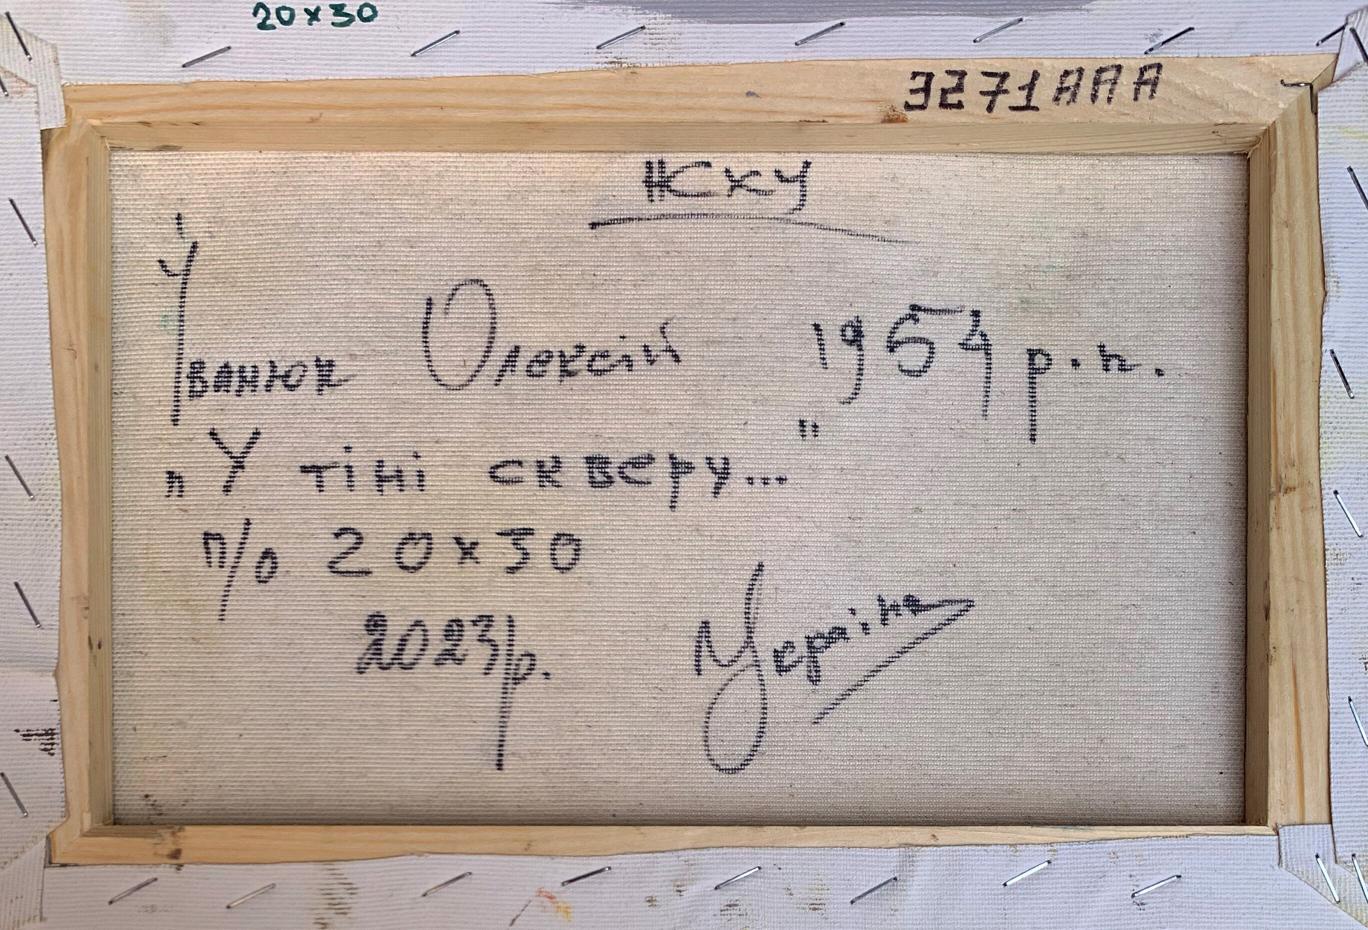 20x30
3271AAA
НСХУ
Іванюк Олексій 1954 р.н.
„У тіні скверу..."
п/о 20x30
2023р.
Україна